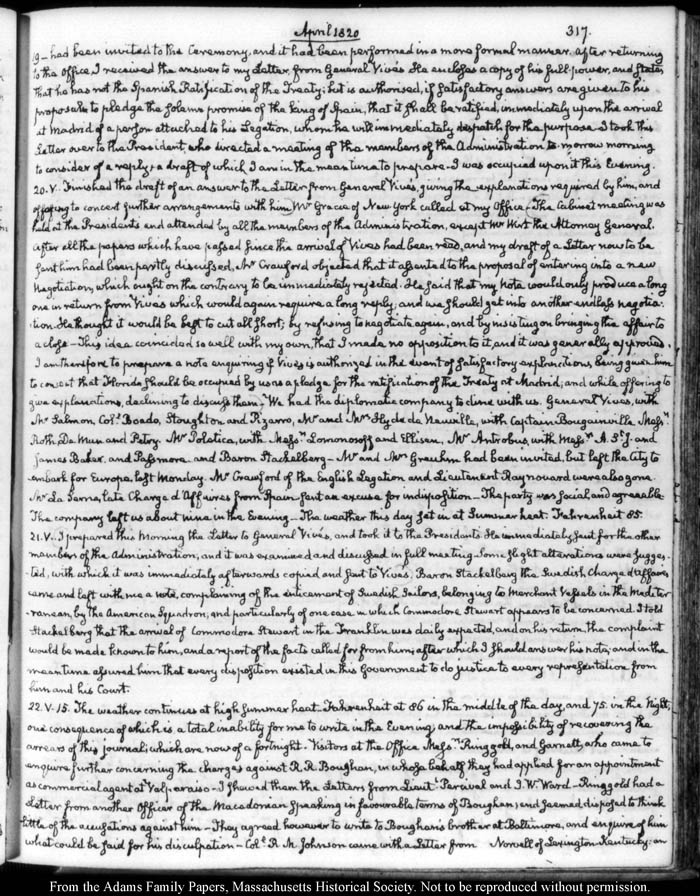 April 1820 317.
19– had been invited to the Ceremony, and it had been performed in a more formal manner. After returning
to the office, I received the answer to my Letter, from General Vives. He encloses a copy of his full power, and states
that he has not the Spanish Ratification of the Treaty; but is authorised, if satisfactory answers are given to his
proposals to pledge the solemn promise of the King of Spain, that it shall be ratified, immediately upon the arrival
at Madrid of a person attached to his Legation, whom he will immediately despatch for the purpose. I took this
Letter over to the President, who directed a meeting of the members of the Administration to-morrow morning
to consider of a reply; a draft of which I am in the mean time to prepare. I was occupied upon it this Evening.
20. V. Finished the draft of an answer to the Letter from General Vives, giving the explanations required by him, and
offering to concert further arrangements with him. Mr Gracie of New York called at my Office. The Cabinet meeting was
held at the Presidents and attended by all the members of the Administration, except Mr Wirt the Attorney General.
After all the papers which have passed since the arrival of Vives had been read, and my draft of a Letter now to be
sent him had been partly discussed, Mr Crawford objected that it assented to the proposal of entering into a new
Negotiation, which ought on the contrary to be immediately rejected. He said that my Note would only produce a long
one in return from Vives which would again require a long reply, and we should get into another endless negotia-
tion. He thought it would be best to cut all short, by refusing to negotiate again, and by insisting on bringing the affair to
a close – This idea coincided so well with my own, that I made no opposition to it, and it was generally approved.
I am therefore to prepare a note enquiring if Vives is authorized in the event of satisfactory explanations, being given him
to consent that Florida should be occupied by us as a pledge for the ratification of the Treaty at Madrid; and while offering to
give explanations, declining to discuss them. We had the diplomatic company to dine with us. General Vives, with
Mr Salmon, Cols Boado, Stoughton and Pizarro, Mr and Mrs Hyde de Neuville, with Captain Bougainville, Messrs
Roth, De Mun and Petry. Mr Poletica, with Messrs Lomonosoff and Ellisen, Mr Antrobus, with Messrs A. St J. and
James Baker, and Passmore and Baron Stackelberg – Mr and Mrs Greuhm had been invited, but left the City to
embark for Europe, last Monday. Mr Crawford of the English Legation and Lieutenant Raynouard were also gone.
Mr La Serna, late Charge d'Affaires from Spain sent an excuse for indisposition – The party was social and agreeable.
The company left us about nine in the Evening – The weather this day set in at Summer heat. Fahrenheit 85.
21. V. I prepared this Morning the Letter to General Vives, and took it to the Presidents. He immediately sent for the other
members of the Administration, and it was examined and discussed in full meeting. Some slight alterations were sugges-
-ted, with which it was immediately afterwards copied and sent to Vives. Baron Stackelberg the Swedish Charge d'Affaires
came and left with me a note, complaining of the enticement of Swedish Sailors, belonging to Merchant Vessels in the Mediter
-ranean, by the American Squadron, and particularly of one case in which Commodore Stewart appears to be concerned. I told
Stackelberg that the arrival of Commodore Stewart in the Franklin was daily expected, and on his return, the complaint
would be made known to him, and a report of the facts called for from him; after which I should answer his note; and in the
mean time assured him that every disposition existed in this Government to do justice to every representation from
him and his Court.
22. V. 15. The weather continues at high summer heat. Fahrenheit at 86 in the middle of the day, and 75. in the Night,
one consequence of which is a total inability for me to write in the Evening, and the impossibility of recovering the
arrears of this journal; which are now of a fortnight. Visitors at the Office Messrs Ringgold, and Garnett, who came to
enquire further concerning the charges against R. R. Boughan, in whose behalf they had applied for an appointment
as commercial agent at Valparaiso – I shewed them the Letters from Lieut Percival and J. W. Ward – Ringgold had a
Letter from another Officer of the Macedonian speaking in favourable terms of Boughan; and seemed disposed to think
little of the accusations against him – They agreed however to write to Boughan's brother at Baltimore, and enquire of him
what could be said for his disculpation – Col. R. M. Johnson came with a Letter from Norvell of Lexington Kentucky; an
From the Adams Family Papers, Massachusetts Historical Society. Not to be reproduced without permission.